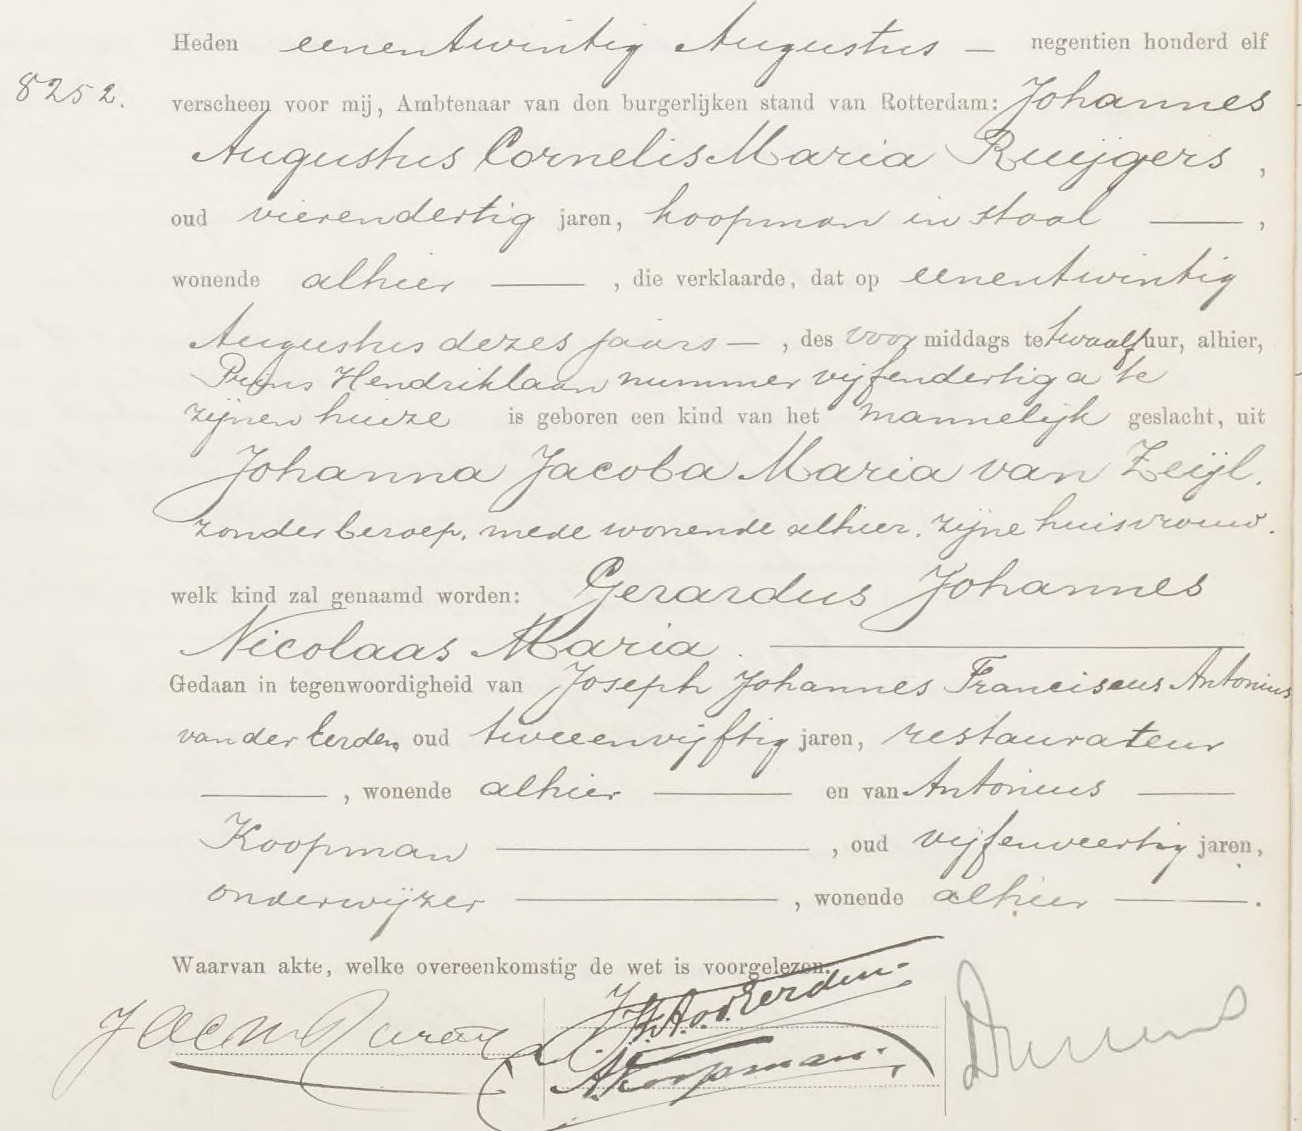 Heden eenentwintig Augustus — negentien honderd elf
8252.
verscheen voor mij, Ambtenaar van den burgerlijken stand van Rotterdam: Johannes
Augustus Cornelis Maria Ruijgers,
oud vierendertig jaren, koopman in staal —,
wonende alhier —, die verklaarde, dat op eenentwintig
Augustus dezes jaars —, des voor middags te twaalf uur, alhier,
Prins Hendriklaan nummer vijfendertig a te
zijnen huize is geboren een kind van het mannelijk geslacht, uit
Johanna Jacoba Maria van Zeijl,
zonder beroep, mede wonende alhier, zijne huisvrouw.
welk kind zal genaamd worden: Gerardus Johannes
Nicolaas Maria. —
Gedaan in tegenwoordigheid van Joseph Johannes Franciscus Antonius
van der Eerden, oud tweeenvijftig jaren, restaurateur
—, wonende alhier — en van Antonius —
Koopman —, oud vijfenveertig jaren,
onderwijzer —, wonende alhier —.
Waarvan akte, welke overeenkomstig de wet is voorgelezen.
J A C M
Eerden.
A Koopman.